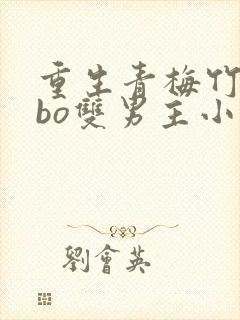 重生青梅竹
bo雙男主小
劉會英